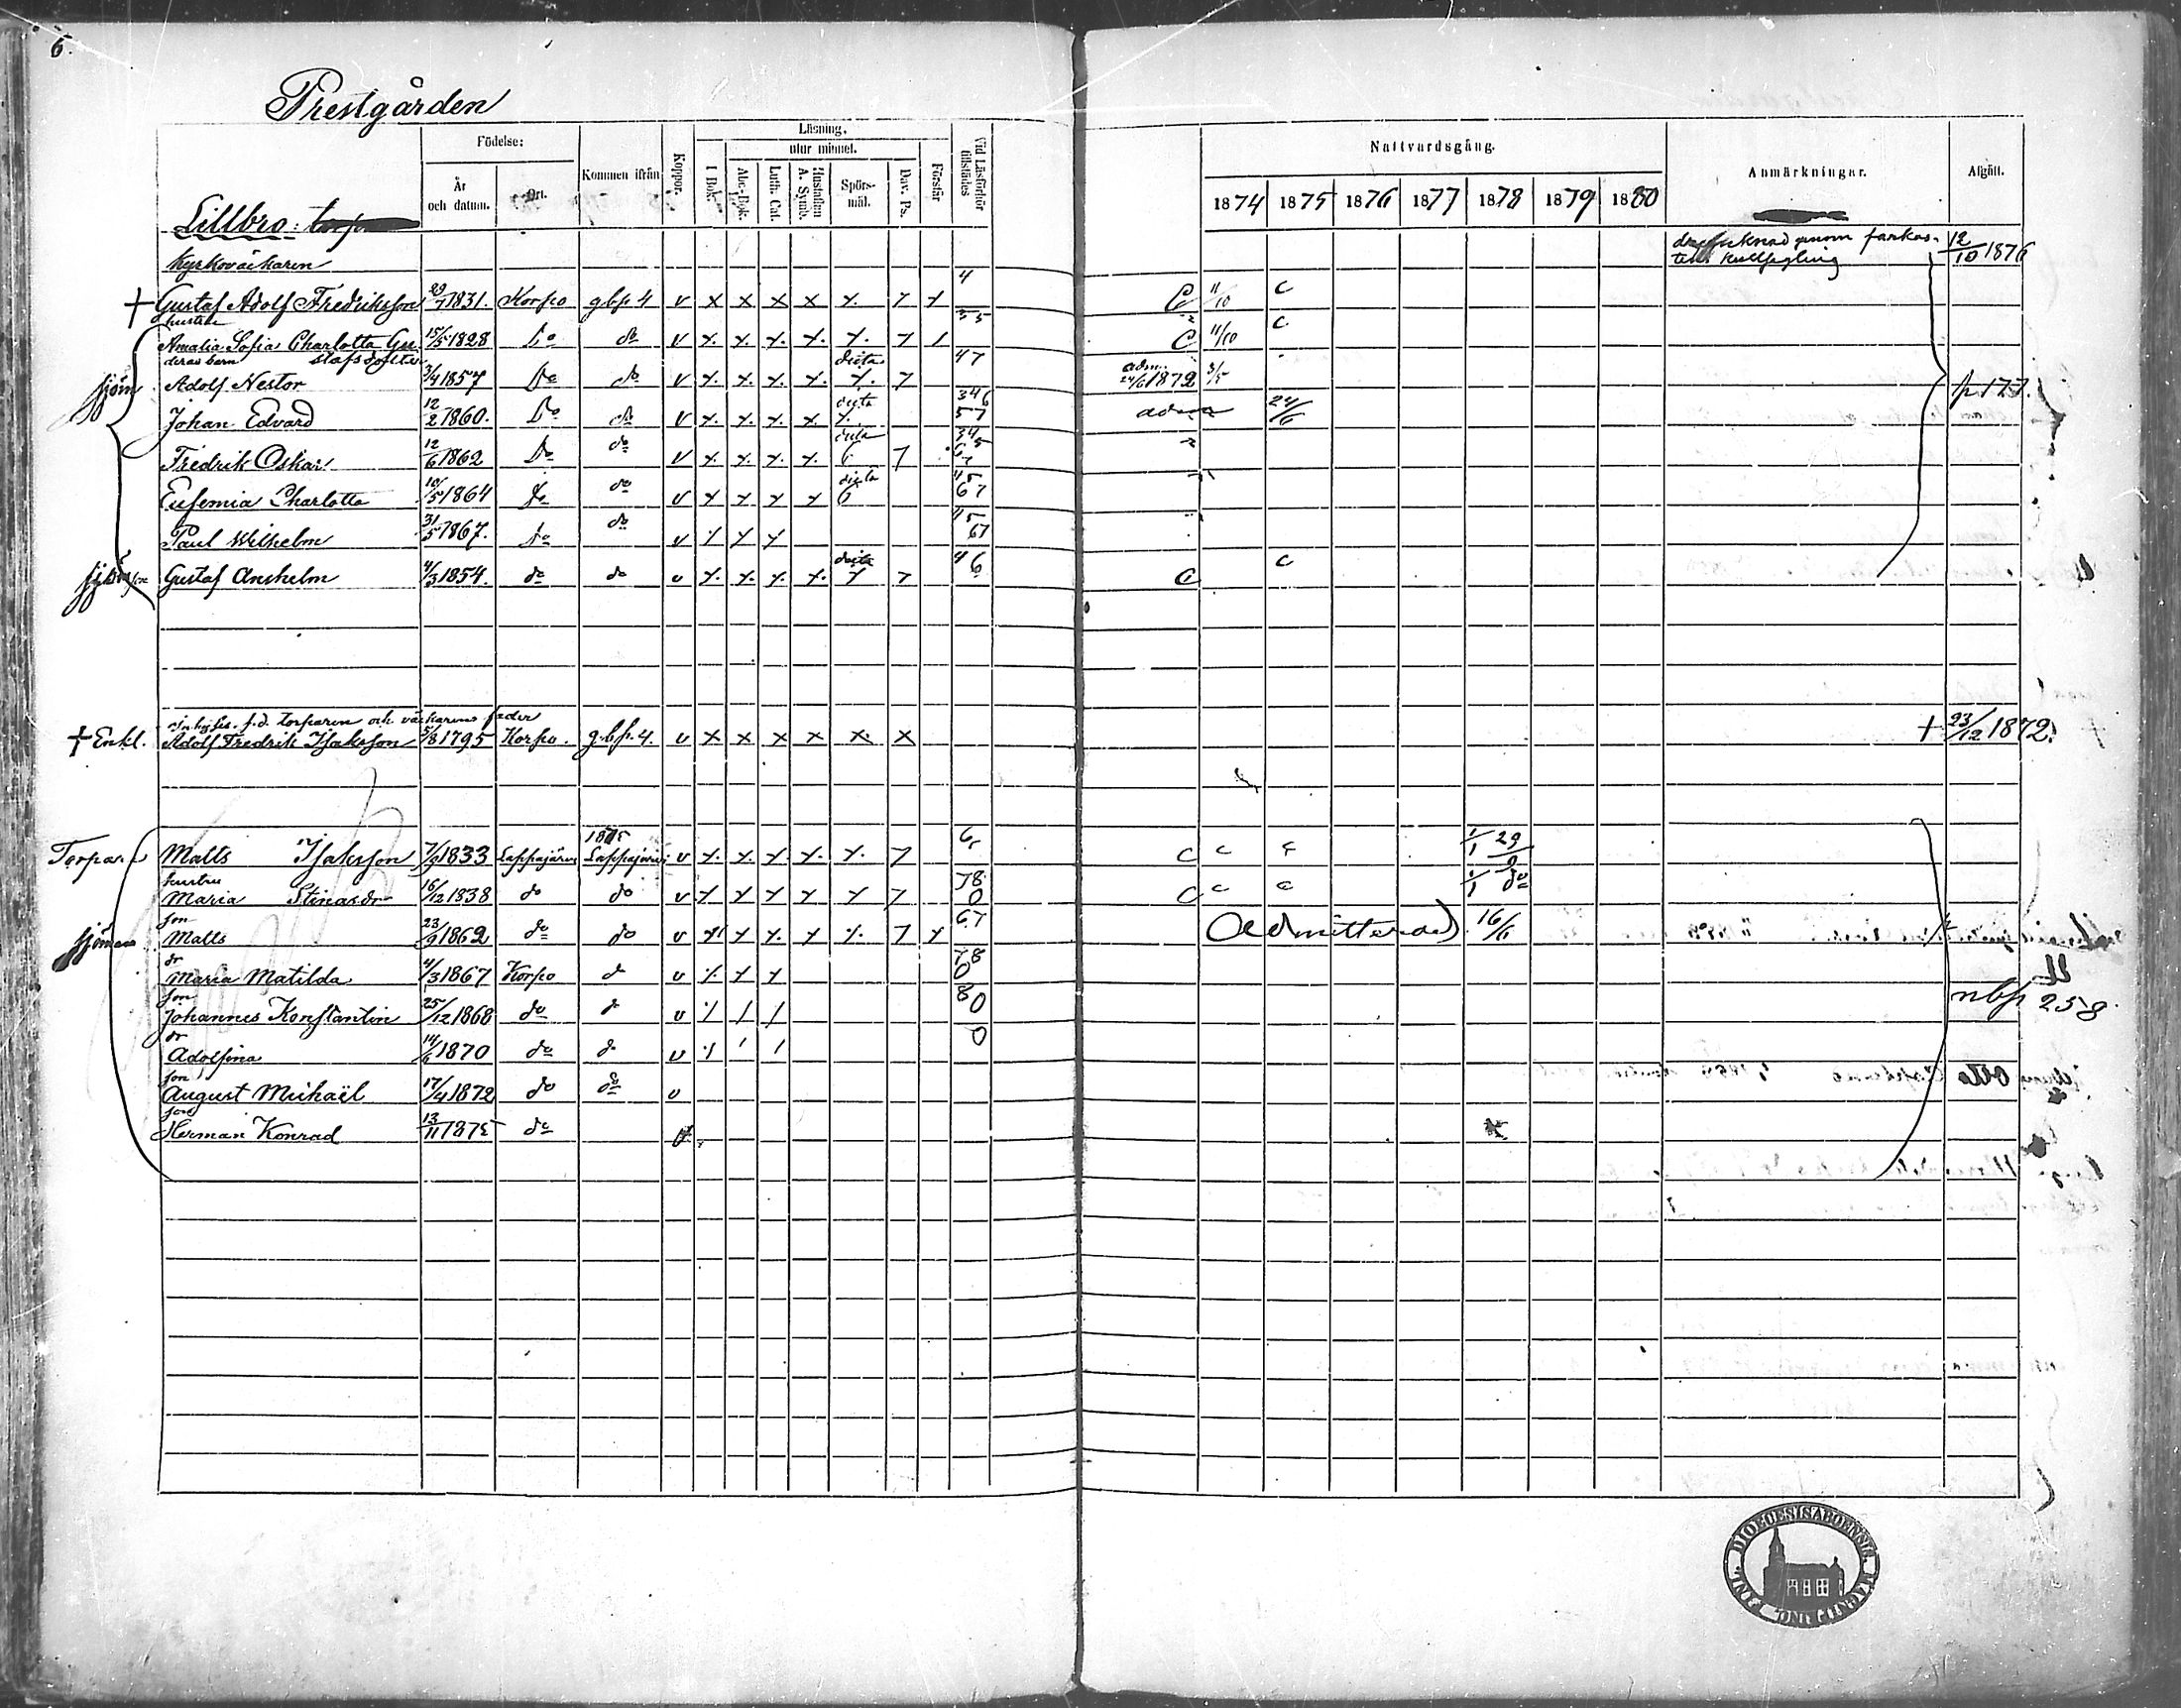 6.
Prestgården
Födelse: Kommen ifrån Koppor. Läsning. Vid Läsförhör tillstädes
utur minnet.
År och datum. Ort. I Bok. Abc-Bok. Luth. Cat. Hustaflan A. Symb. Spörs-mål. Dav. Ps. Förstår
Nattvardsgång. Anmärkningar. Afgått.
1874 1875 1876 1877 1878 1879 1880
Lillbro:
Kyrkoväktaren genom farkos- 12/10 1876
tens kullsegling
† Gustaf Adolf Fredriksson 29/7 1831. Korpo gbp 4 v x x x x x. 7 x 4 C 11/10 c
hustru
Amalia Sofia Charlotta Gu- 15/5 1828 Do do v x. x. x. x. x. 7 / C 11/10 c
deras barn stafsdotter
Adolf Nestor 3/4 1857 Do do v x. x. x. x. x. 7 47 adm. 24/6 1872 3/5 p. 177.
Johan Edvard 12/2 1860. Do do v x. x. x. x x. 346 57 24/6
Fredrik Oskar 12/6 1862 Do do v x. x. x. x. 7
Eufemia Charlotta 10/5 1864 Do do v x x x x 45 67
Paul Wilhelm 31/5 1867. Do do v x x x 45 67
Gustaf Anshelm 4/3 1854. do do v x. x. x. x. x 7 46 C c
Inhyses. f.d. torparen och väktarens fader
† Enkl. Adolf Fredrik Isaksson 5/8 1795 Korpo. gbp. 4. v x x x x x. x † 23/12 1872.
1875
Torpare Matts Isaksson 7/9 1833 Lappajärvi Lappajärvi v x. x. x x. x. 7 c c c 1/1 29/9
hustru
Maria Stinasdr 16/12 1838 do do v x x x x x 7 78 0 c c c 1/1 do
son
sjöman Matts 23/9 1862 do do v x x x. x x. 7 x 67 Admitterad 16/6
dr
Maria Matilda 4/3 1867 Korpo d v x x x 78 0
son
Johannes Konstantin 25/12 1868 do d v / / / 80 nbp 258.
dr
Adolfina 14/6 1870 do d v / / / 0
son
August Mickaël 17/4 1872 do do v
son
Herman Konrad 13/11 1875 do